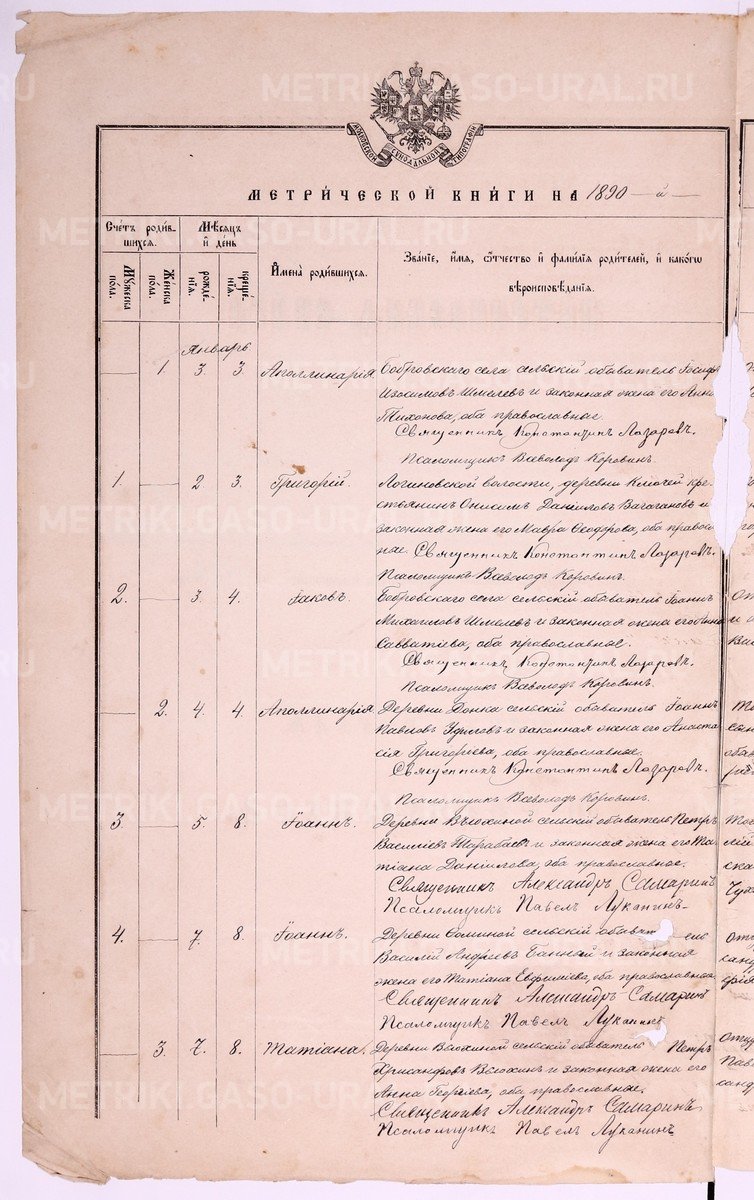 МОСКОВСКОЙ СѴНОДАЛЬНОЙ ТИПОГРАФІИ
МЕТРИ́ЧЕСКОЙ КНИ́ГИ НА 1890 - й -
Сче́тъ роди́в-
шихся.
Мѣ́сяцъ
и҆ де́нь
И҆мена̀ роди́вшихся.
Зва́нїе, и҆́мя, ѻ҆́тчество и҆ фами́лїя роди́телей, и҆ како́гѡ
вѣроисповѣ́данїя.
Му́жеска
по́ла.
Же́нска
по́ла.
рожде́-
нїя.
креще́-
нїя.
Январь
1. 3. 3. Аполлинарія Бобровскаго села сельскій обыватель Іосифъ
Изосимовъ Шмелевъ и законная жена его Анна
Тихонова, оба православные.
Священникъ Константинъ Лазаревъ.
Псаломщикъ Всеволодъ Коровинъ.
1. 2 3. Григорій. Логиновской волости, деревни Ключей кре-
стьянинъ Онисимъ Даніиловъ Вагагановъ и
законная жена его Мавра Ѳеодорова, оба правосл
ные. Священникъ Константинъ Лазаревъ.
Псаломщикъ Всеволодъ Коровинъ.
2. 3. 4. Іаковъ. Бобровскаго села сельскій обыватель Іоаннъ
Михаиловъ Шмелевъ и законная жена его Анна
Савватіева, оба православные.
Священникъ Константинъ Лазаревъ.
Псаломщикъ Всеволодъ Коровинъ.
2. 4. 4. Аполлинарія Деревни сельскій обыватель Іоаннъ
Павловъ и законная жена его Анаста
сія Григорьева, оба православные.
Священникъ Константинъ Лазаревъ.
Псаломщикъ Всеволодъ Коровинъ.
3. 5. 8. Іоаннъ. Деревни Вьюхиной сельскій обыватель Петръ
Василіевъ Тарабаевъ и законная жена его Та-
тіана Даніилова, оба православные.
Священникъ Александръ Самаринъ
Псаломщикъ Павелъ Луканинъ
4. 7. 8. Іоаннъ. Деревни Фоминой сельскій обыват
Василій Андреевъ Банной и законная
жена его Татіана Евфиміева, оба православные.
Священникъ Александръ Самаринъ
Псаломщикъ Павелъ Луканинъ
3. 7. 8. Татіана. Деревни Вьюхиной сельскій обыватель Петръ
Хрисанфовъ Вьюхинъ и законная жена его
Анна Георгіева, оба православные.
Священникъ Александръ Самаринъ
Псаломщикъ Павелъ Луканинъ
METRIK.GASO-URAL.RU